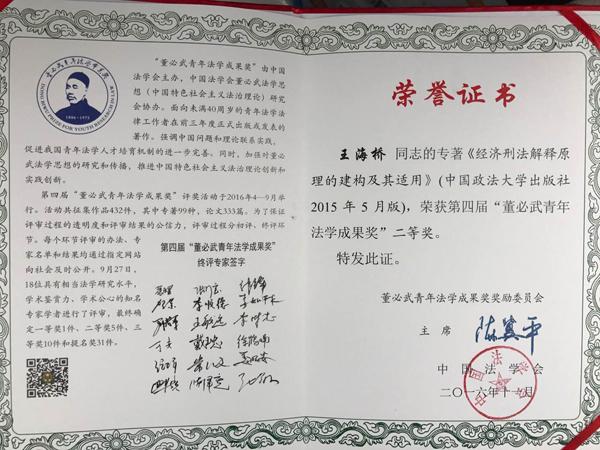 董必武青年法学成果奖
DONG BIWU PRIZE FOR YOUTH RESEARCH IN LAW
1886-1975
“董必武青年法学成果奖”由中国
法学会主办，中国法学会董必武法学思
想（中国特色社会主义法治理论）研究
会协办。面向未满40周岁的青年法学法
律工作者在前三年度正式出版或发表的
著作。强调中国问题和理论联系实践，
促进我国青年法学人才培育机制的进一步完善。同时，加强对董必
武法学思想的研究和传播，推进中国特色社会主义法治理论创新和
实践创新。
第四届“董必武青年法学成果奖”评奖活动于2016年4—9月举
行。活动共征集作品432件，其中专著99种，论文333篇。为了保证
评审过程的透明度和评审结果的公信力，评审过程分初评、终评环
节。每个环节评审的办法、专
家名单和结果均通过指定网站
向社会及时公开。9月27日，
18位具有相当法学研究水平，
学术鉴赏力、学术公心的知名
专家学者进行了评审，最终确
定一等奖1件、二等奖5件、三
等奖10件和提名奖31件。
第四届“董必武青年法学成果奖”
终评专家签字
荣誉证书
王海桥 同志的专著《经济刑法解释原
理的建构及其适用》(中国政法大学出版社
2015 年 5 月版)，荣获第四届“董必武青年
法学成果奖”二等奖。
特发此证。
董必武青年法学成果奖奖励委员会
主 席 陈冀平
中 国 法 学 会
二〇一六年十一月
中国法学会